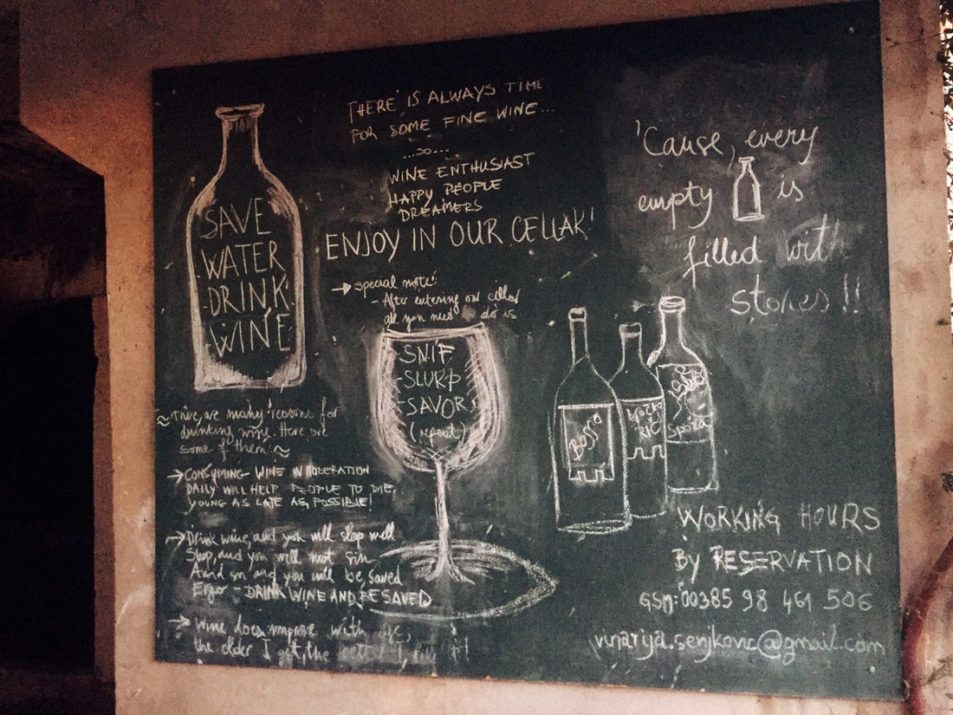 SAVE
WATER
DRINK
WINE
THERE IS ALWAYS TIME
FOR SOME FINE WINE...
...SO...
WINE ENTHUSIAST
HAPPY PEOPLE
DREAMERS
ENJOY IN OUR CELLAR!
→ special note:
- After entering our cellar
all you need to do is
SNIF
-SLURP
-SAVOR
(repeat)
'Cause, every
empty is
filled with
stories!!
Bosso
RIC
Spoza
~ There are many reasons for
drinking wine. Here are
some of them: ~
→ CONSYMING WINE IN MODERATION
DAILY WILL HELP PEOPLE TO DIE
YOUNG AS LATE AS POSSIBLE!
→ Drink wine, and you will sleep well
Sleep, and you will not sin
Avoid sin and you will be saved
Ergo - DRINK WINE AND BE SAVED
→ Wine does improve with age,
the older I get, the better I
WORKING HOURS
By RESERVATION
GSM: 00385 98 461 506
vinarija.senjkovic@gmail.com